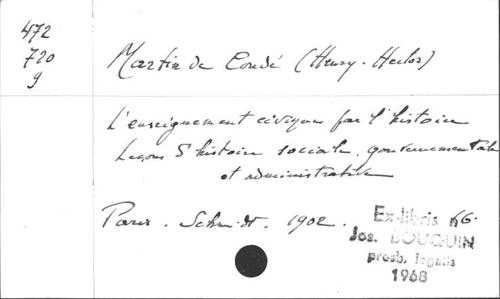 472
720
g
Martin de Condé (Henry-Hector)
L'enseignement civique par l'histoire
Leçons d'histoire sociale, gouvernementale
et administrative
Paris. Schmidt. 1902.
Ex-libris
Jos. BOUQUIN
presb. legatis
1968